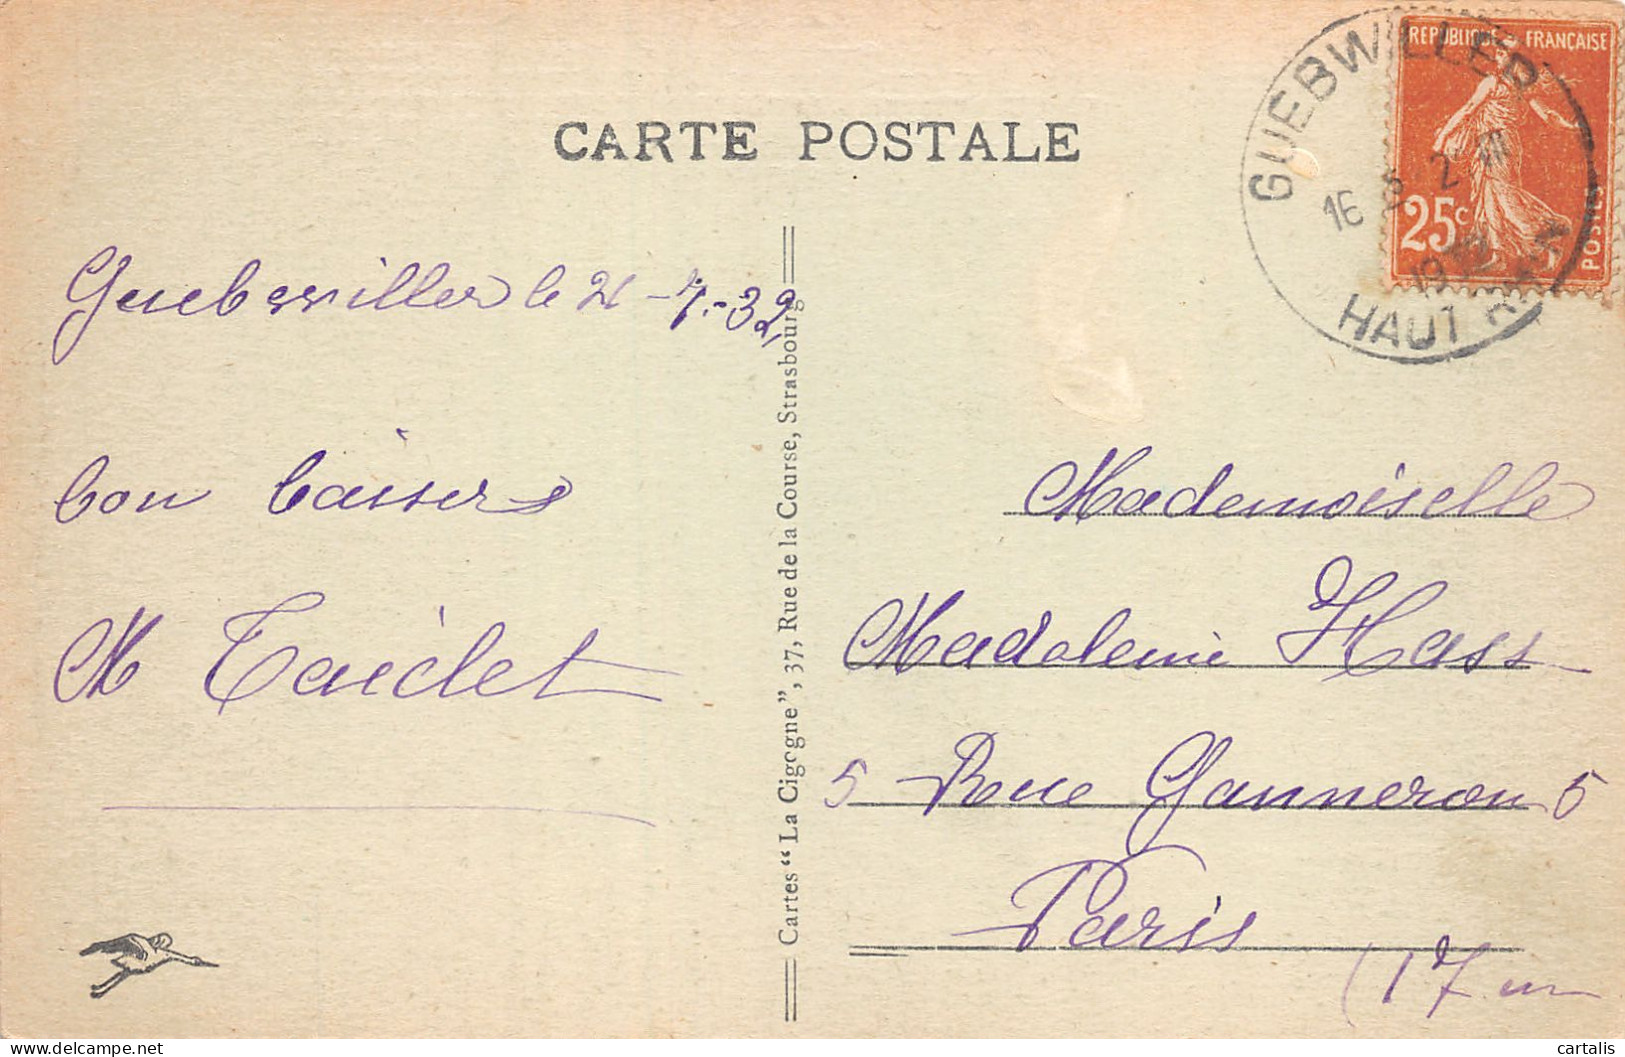 CARTE POSTALE
GUEBWILLER
16
HAUT RHIN
REPUBLIQUE FRANÇAISE
25c
POSTES
Guebwiller le 21-7-32
bon baisers
M Taidet
Cartes "La Cigogne", 37, Rue de la Course, Strasbourg
Mademoiselle
Madeleine Hass
5 Rue Ganneron 5
Paris
(17 em
delcampe.net
cartalis